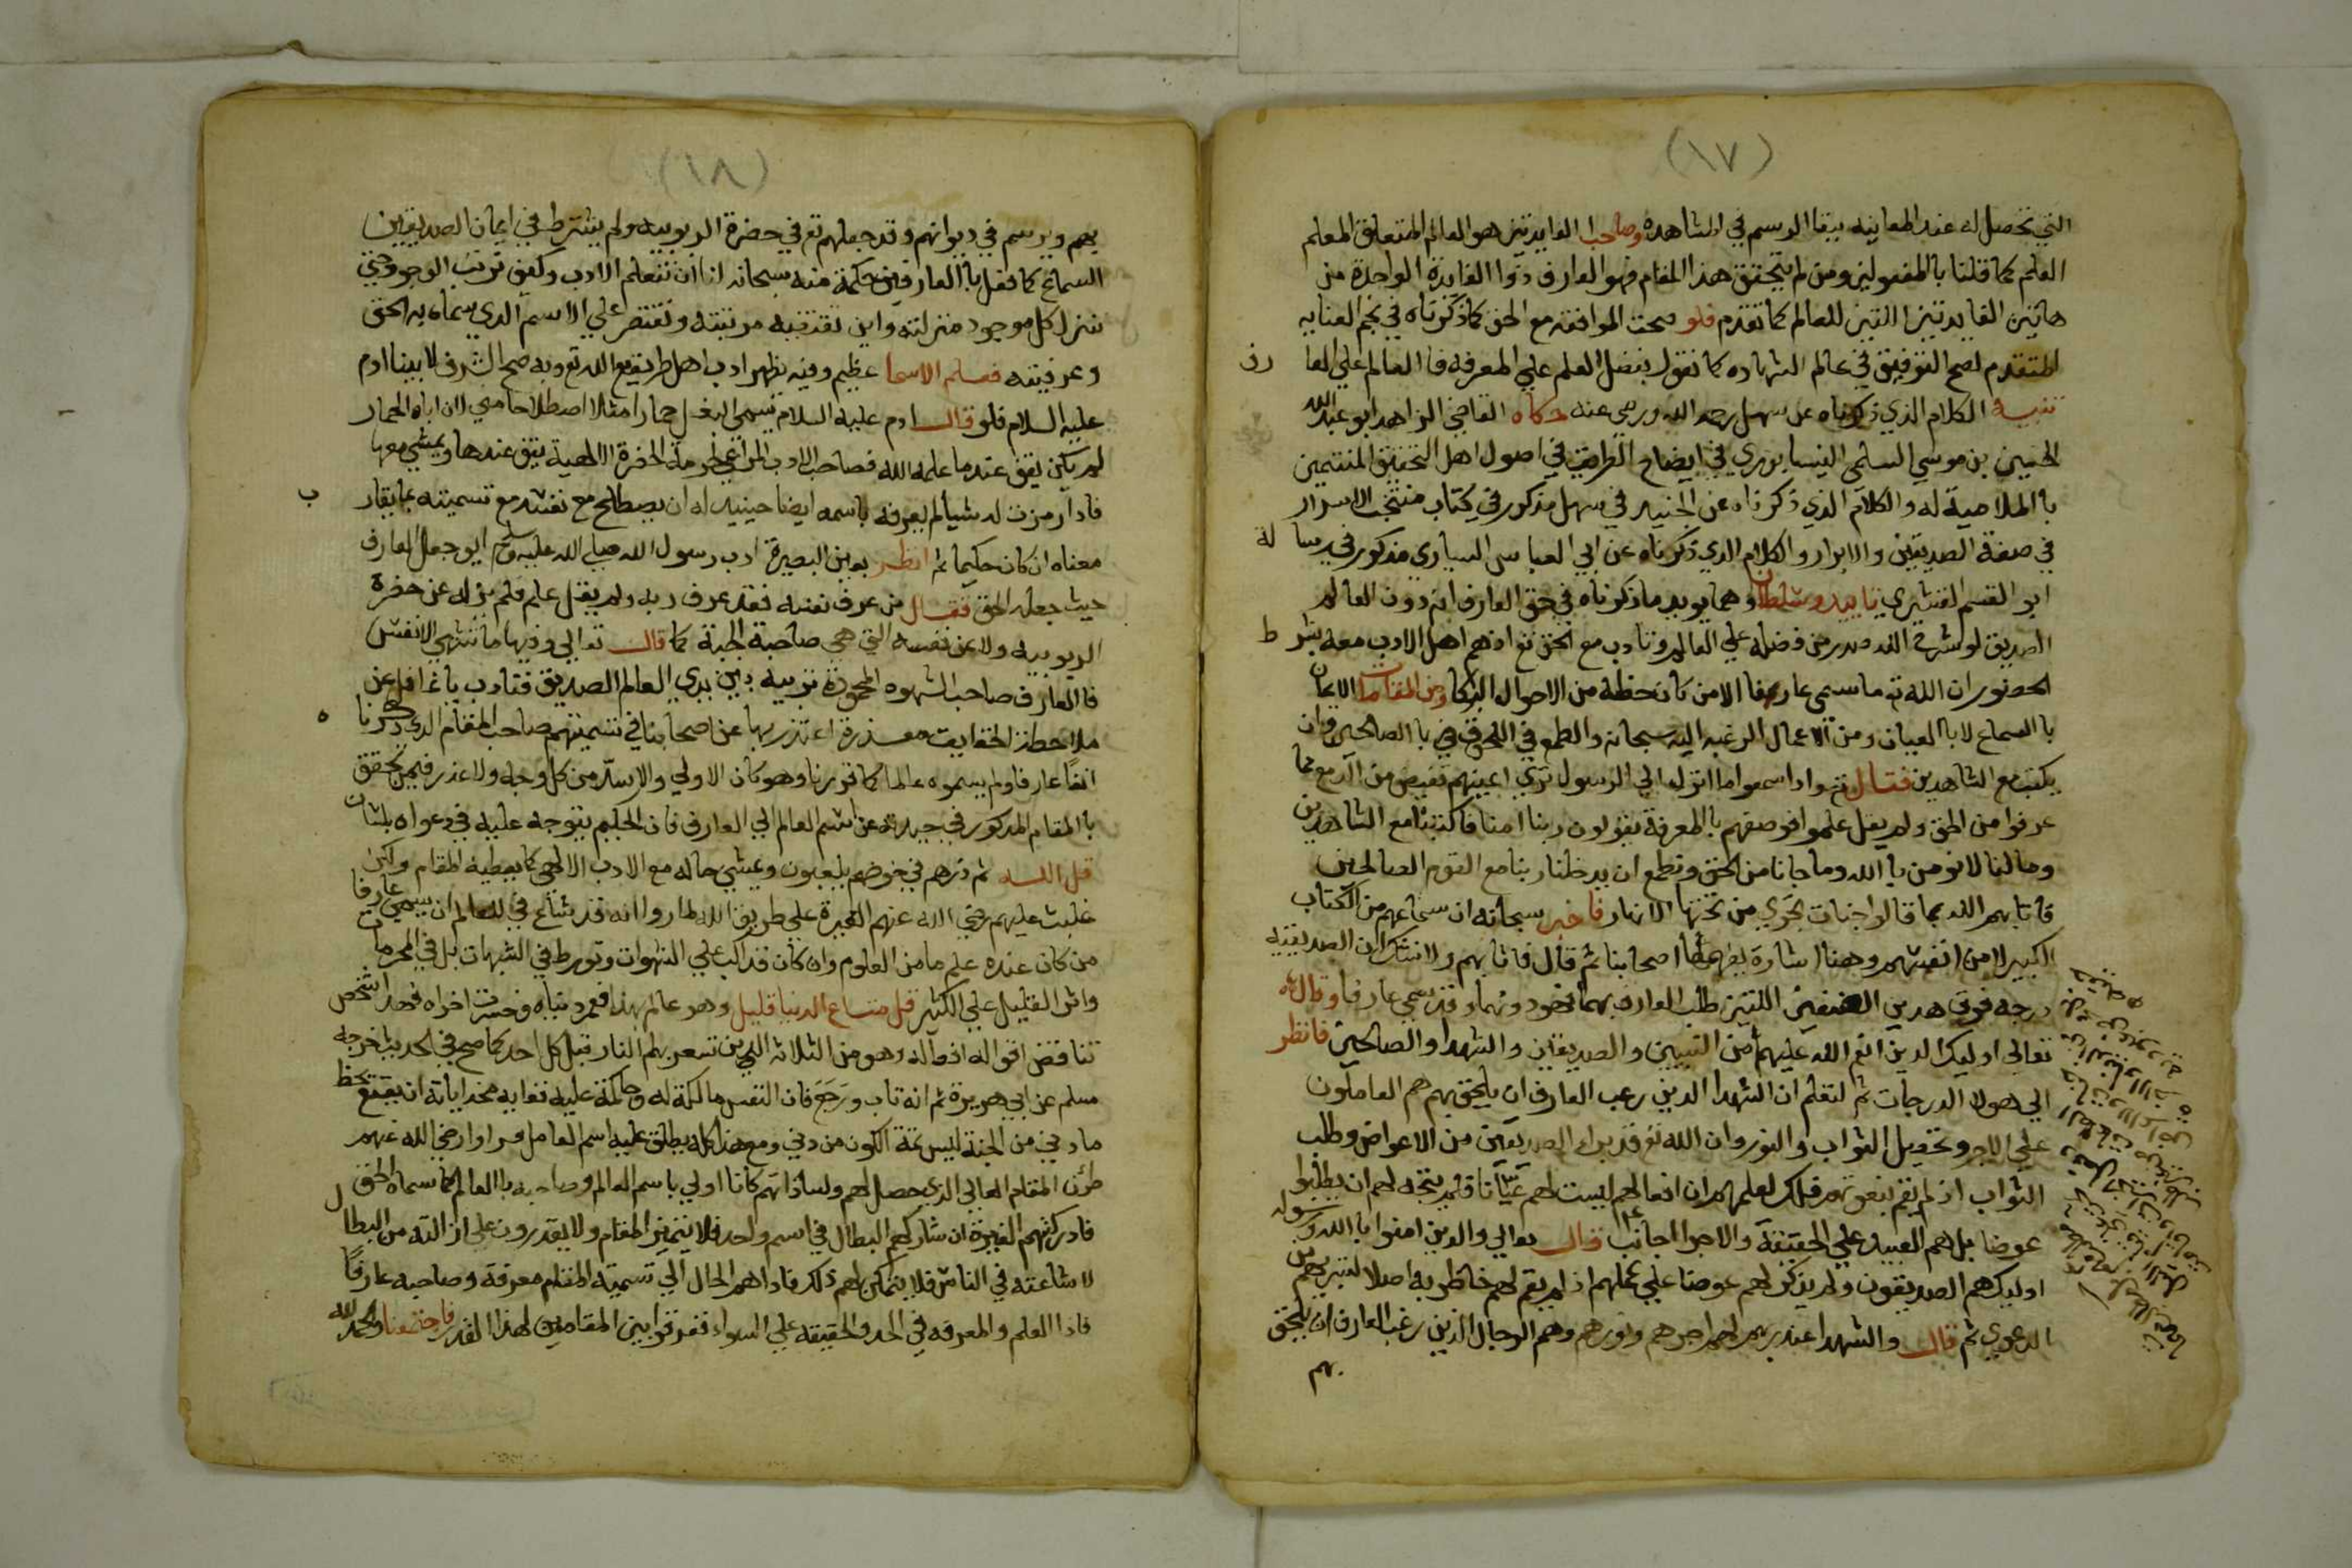 (١٧)
التي تحصل له عند المعاينه ببقا الرسم في المشاهده وصاحب الفايدتين هو العالم المتعلق المعلم
العلم كما قلنا بالمفعولين ومن لم يتحقق هذا المقام فهو العارف ذوا الفايدة الواحدة من
هاتين الفايدتين اللتين للعالم كما تقدم فلو صحت الموافقه مع الحق كما ذكرناه في نجم العنايه
المتقدم لصح التوفيق في عالم الشهاده كما نقول بفضل العلم علي المعرفه فا العالم علي العا رف
تنبيه الكلام الذي ذكرناه عن سهل رحمه الله ورضى عنه حكاه القاضي الزاهد ابو عبد الله
الحسين بن موسي السلمى النيسابوري في ايضاح الطرايق في اصول اهل التحقيق المنتمين
با الملامية له و الكلام الذي ذكرناه عن الجنيد في سهل مذكور في كتاب منتخب الاسرار
في صفة الصديقين والابرار و الكلام الذي ذكرناه عن ابي العباس السياري مذكور في رسا لة
ابو القسم القشيري تاييد وسلطان وهما يويد ما ذكرناه في حق العارف انه دون العالم
الصديق لو شرح الله صدر من فضله علي العالم وتادب مع الحق تع اذ هم اهل الادب معه بشر ط
الحضور ان الله تع ما سمى عارفا الا من كان حظه من الاحوال البكا ومن المقامات الايمان
با السماع لا با العيان ومن الاعمال الرغبه اليه سبحانه والطمع في اللحوق با الصالحين وان
يكتب مع الشاهدين فقال تع واذا سمعوا ما انزل الي الرسول تري اعينهم تفيض من الدمع مما
عرفوا من الحق ولم يقل علموا فوصفهم با المعرفة يقولون ربنا امنا فاكتبنا مع الشاهدين
وما لنا لا نومن با الله وما جانا من الحق ونطمع ان يدخلنا ربنا مع القوم الصالحين
فاثابهم الله بما قالوا جنات تجري من تحتها الانهار فاخبر سبحانه ان سماعهم من الكتاب
الكبير لا من انفسهم وهنا اشارة اصحابنا ثم قال فاثابهم ولا نشك ان الصديقيه
درجه فوق هدين الصنفين اللتين طلب العارف بهما فهو دونهما وقد سمي عارفا وقال الله
تعالي اوليك الذين انعم الله عليهم من النبيين والصديقين والشهدا والصالحين فانظر
الي هولا الدرجات ثم لتعلم ان الشهدا الذين رعب العارف ان يلحق بهم هم العاملون
علي الاجر وتحصيل الثواب والنور وان الله تع قد براء الصديقين من الاعواض وطلب
الثواب اذ لم يقم بنفوسهم ذلك لعلمهم ان افعالهم ليست لهم فلم يتجه لهم ان يطلبوا
عوضا بل هم العبيد علي الحقيقة والاجرا مجانب قال تعالي والذين امنوا با الله ورسوله
اوليك هم الصديقون ولم يذكر لهم عوضا علي عملهم اذ لم يقم لهم خاطر به اصلا لتبريهم من
الدعوي ثم قال والشهدا عند ربهم لهم اجرهم ونورهم وهم الرجال الذين رغب العارف ان يلحق
بهم
(١٨)
بهم ويرسم في ديوانهم وقد جعلهم تع في حضرة الربوبيه ولم يشترط في ايمان الصديقين
السماع كما فعل با العارفين حكمة منه سبحانه لنا ان نتعلم الادب وكيف ترتب الوجود حتي
ننزل كل موجود منزلته واين تقتضيه مرتبته ونقتصر علي الاسم الذي سماه به الحق
وعرفيته فعلم الاسما عظيم وفيه يظهر ادب اهل طريقه مع الله تع وبه صح الشرف لابينا ادم
عليه السلام فلو قال ادم عليه السلام نسمى البغل حمارا مثلا اصطلاحا مني لان اباه الحمار
لم يكن يقف عند ما علمه الله فصاحب الادب المراعي لحرمة الحضرة الالهية يقف عندها ويمشي معها
فاذا مرت له شيا لم يعرفه باسمه ايضا حينيد له ان يصطلح مع نفسه مع تسميته بما يقار ب
معناه ان كان حكيما ثم انظر بعين البصيرة ادب رسول الله صلي الله عليه وسلم اين جعل العارف
حيث جعله الحق فقال من عرف نفسه فقد عرف ربه ولم يقل علم فلم ينزله عن حضرة
الربوبيه ولا عن نفسه التي هي صاحبة الجنة كما قال تعالي وفيها ما تشتهي الانفس
فا العارف صاحب الشهوه المحمودة تربيه بين يدي العالم الصديق فتادب يا غافل عن
ملاحظة الحقايق معذرة اعتذر بها عن اصحابنا في تسميتهم صاحب المقام الذي ذكرنا ه
انفا عارفا ولم يسموه عالما كما قررنا وهو كان الاولي والاسد من كل وجه ولا عذر فيمن تحقق
با المقام المذكور في حيدته عن اسم العالم الي العارف فان الحكيم يتوجه عليه في دعواه بلسان
قل الله ثم ذرهم في خوضهم يلعبون ويمشي حاله مع الادب الالهي كما يعطيه المقام ولكن
غلبت عليهم رضي الله عنهم الغيرة علي طريق الله لما روا انه قد شاع في العالم ان يسمي عارفا
من كان عنده علم ما من العلوم وان كان قد اكب علي الشهوات وتورط في الشبهات بل في المحرمات
واثر القليل علي الكثير قل متاع الدنيا قليل وهو عالم بهذا فعمر دنياه وخرب اخراه فهذا شخص
تناقض اقواله افعاله وهو من الثلاثه الذين تسعر بهم النار قبل كل احد كما صح في الحديث خرجه
مسلم عن ابي هريرة ثم انه تاب ورجع فان النفس مالكة له وحاكمة عليه فغايه هدايته ان يقنع بحظ
ما دني من الجنة ليس ثمة الكون من دني ومع هذا كله يطلق عليه اسم العامل فراوا رضي الله عنهم
المقام العالي الذي حصل لهم ولساداتهم كانا اولي باسم العالم وصاحبه با العالم كما سماه الحق
فادركتهم الغيرة ان شاركهم البطال في اسم واحد فلا يتميز المقام ولا يقدرون علي ازالته من البطا ل
لاشاعته في الناس فلا يتمكن لهم ذلك فاداهم الحال الي تسمية المقام معرفة وصاحبه عارفًا
فاذا العلم والمعرفه في الحد والحقيقه علي السواء ففرقوا بين المقامين لهذا القدر فاجتمعنا والحمد لله